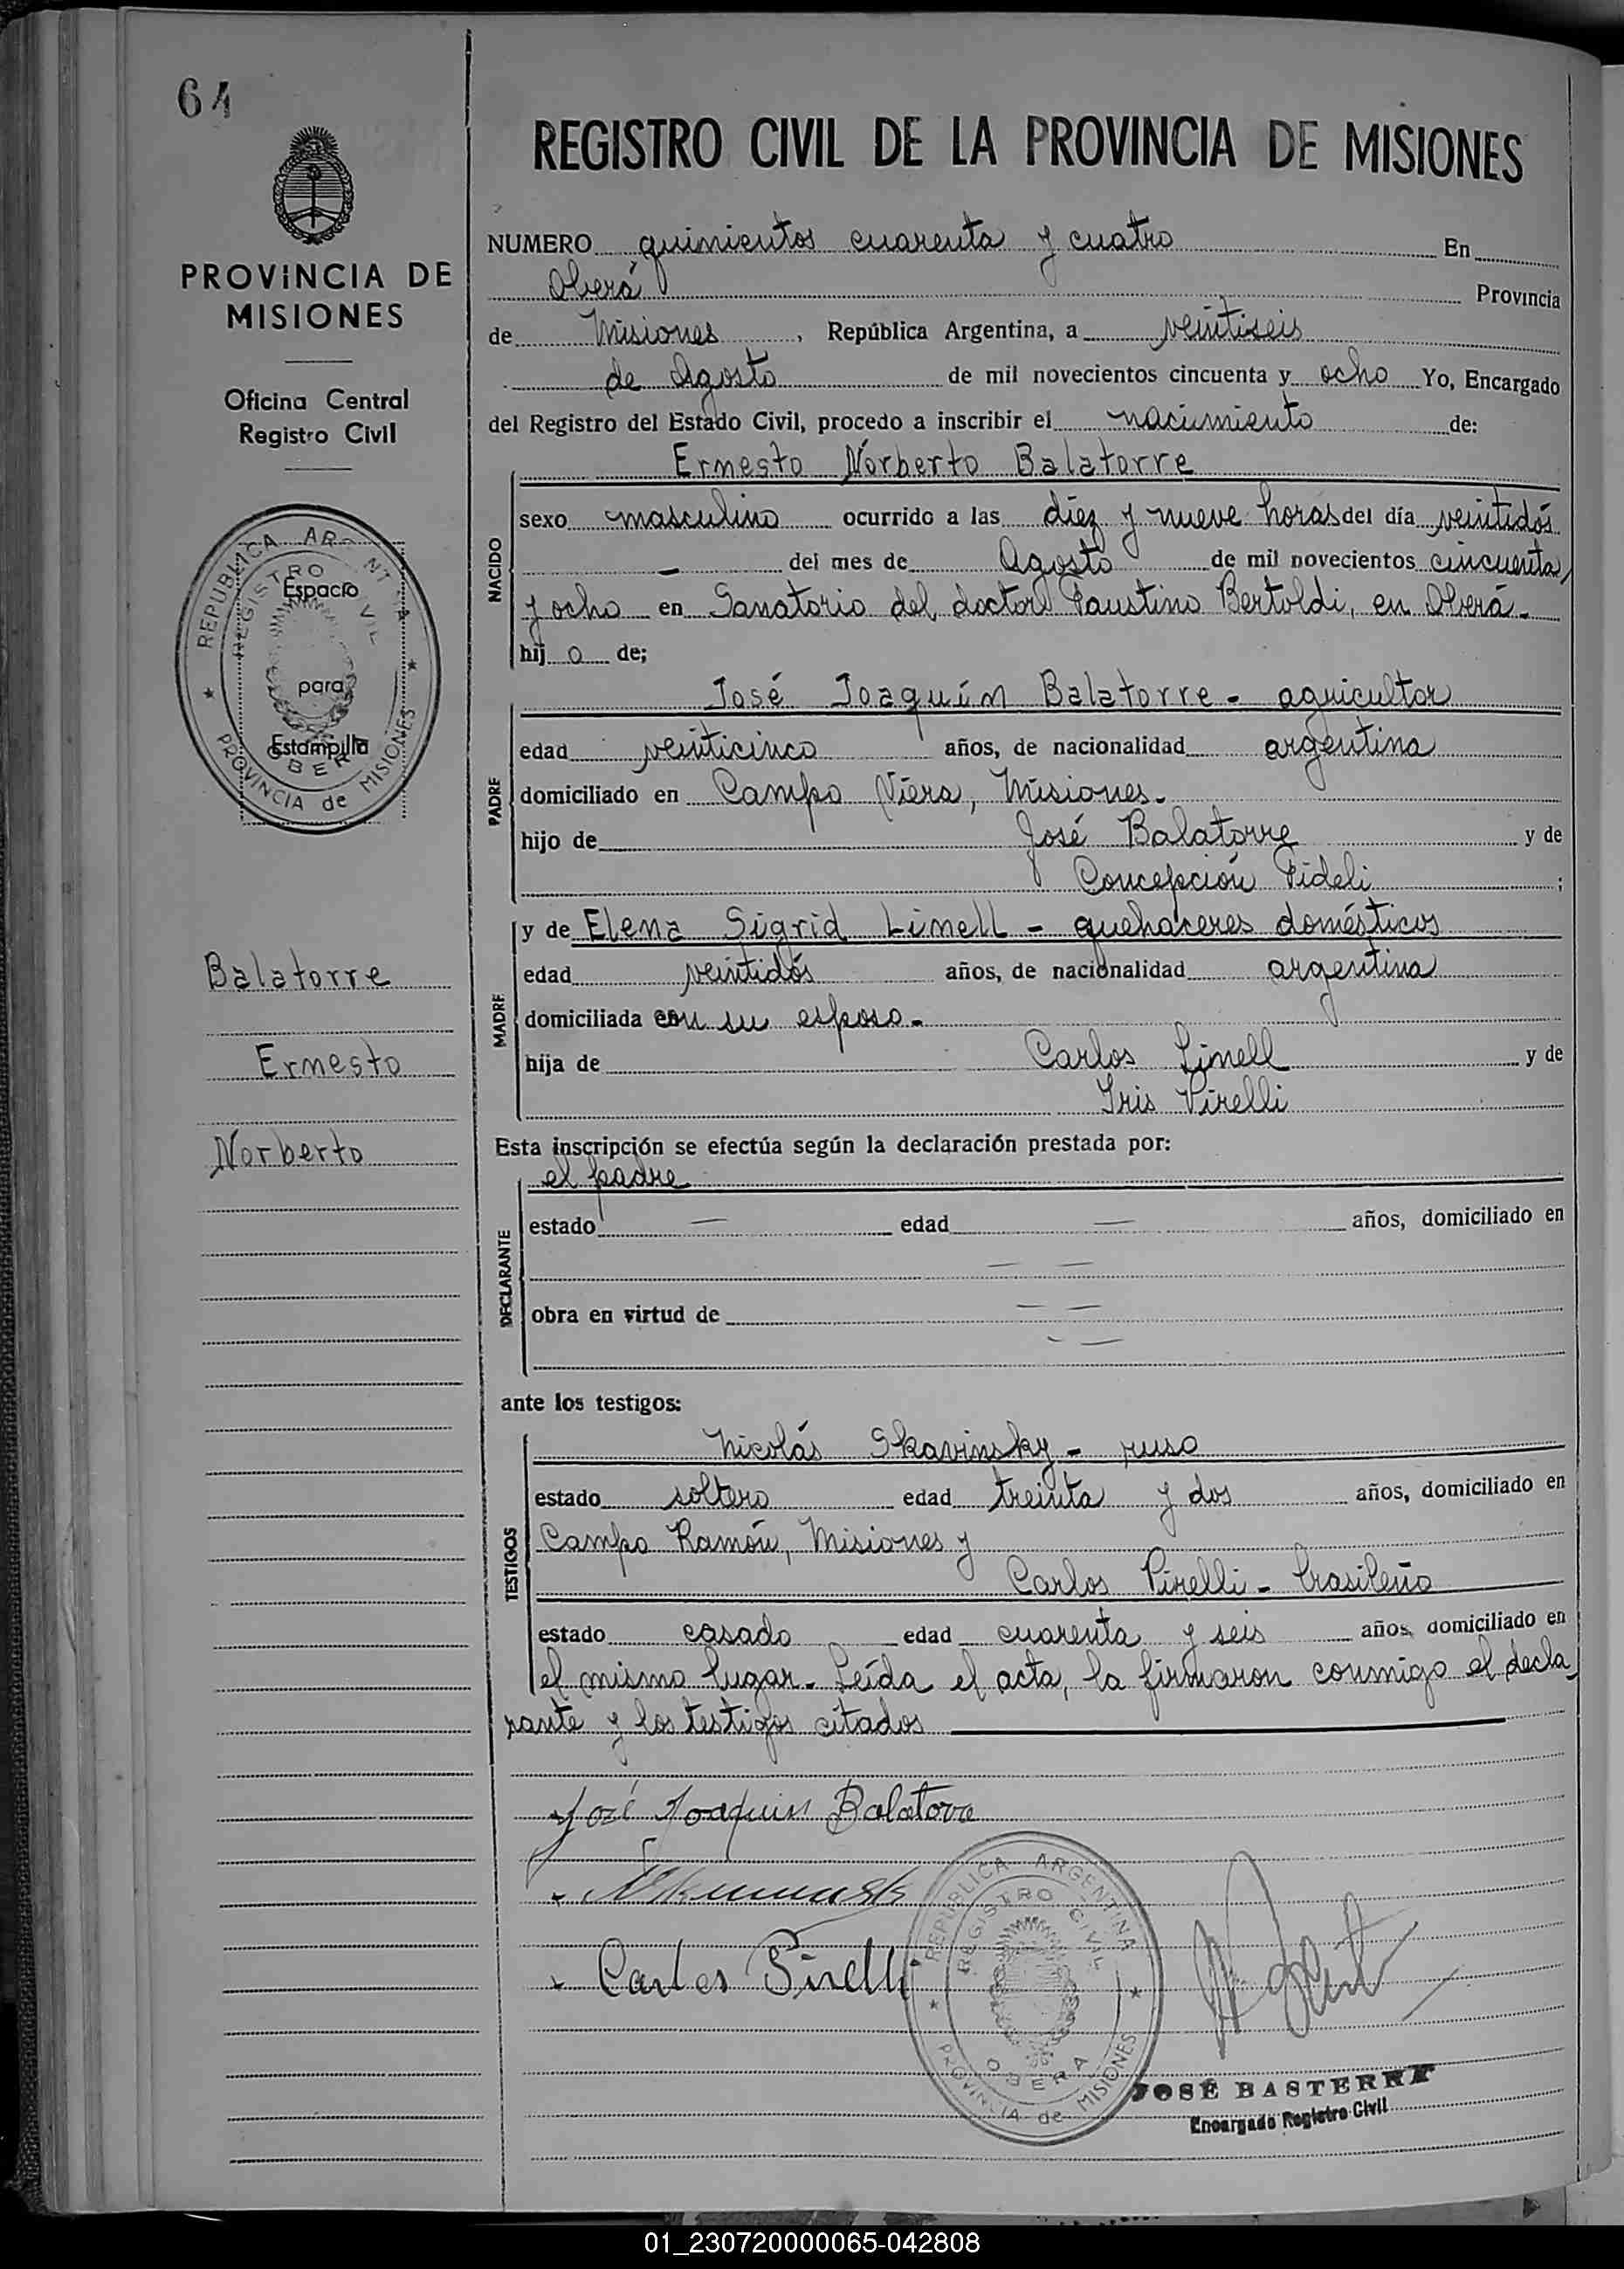 64
REGISTRO CIVIL DE LA PROVINCIA DE MISIONES
PROVINCIA DE
MISIONES
Oficina Central
Registro Civil
REPUBLICA ARGENTINA
REGISTRO CIVIL
Espacio
para
Estampilla
OBERA
PROVINCIA de MISIONES
Balatorre
Ernesto
Norberto
NUMERO quinientos cuarenta y cuatro En
Oberá Provincia
de Misiones, República Argentina, a veintiseis
de Agosto de mil novecientos cincuenta y ocho Yo, Encargado
del Registro del Estado Civil, procedo a inscribir el nacimiento de:
Ernesto Norberto Balatorre
NACIDO
sexo masculino ocurrido a las diez y nueve horas del día veintidós
— del mes de Agosto de mil novecientos cincuenta
y ocho en Sanatorio del doctor Faustino Bertoldi, en Oberá.
hij o de;
PADRE
José Joaquín Balatorre - agricultor
edad veinticinco años, de nacionalidad argentina
domiciliado en Campo Viera, Misiones.
hijo de José Balatorre y de
Concepción Fideli ;
MADRE
y de Elena Sigrid Linell - quehaceres domésticos
edad veintidós años, de nacionalidad argentina
domiciliada con su esposo.
hija de Carlos Linell y de
Iris Pirelli
Esta inscripción se efectúa según la declaración prestada por:
el padre
DECLARANTE
estado — edad — años, domiciliado en
— —
obra en virtud de — —
— —
ante los testigos:
TESTIGOS
Nicolás Skavinsky - ruso
estado soltero edad treinta y dos años, domiciliado en
Campo Ramón, Misiones y
Carlos Pirelli - brasileño
estado casado edad cuarenta y seis años, domiciliado en
el mismo lugar. Leída el acta, la firmaron conmigo el decla-
rante y los testigos citados
José Joaquin Balatorre
Carlos Pirelli
REPUBLICA ARGENTINA
REGISTRO CIVIL
OBERA
PROVINCIA de MISIONES
JOSÉ BASTERRA
Encargado Registro Civil
01_230720000065-042808